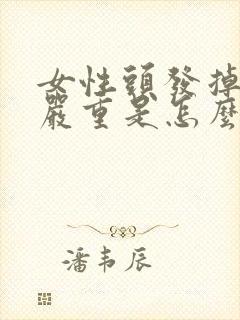 女性頭發掉
嚴重是怎麼
潘韦辰